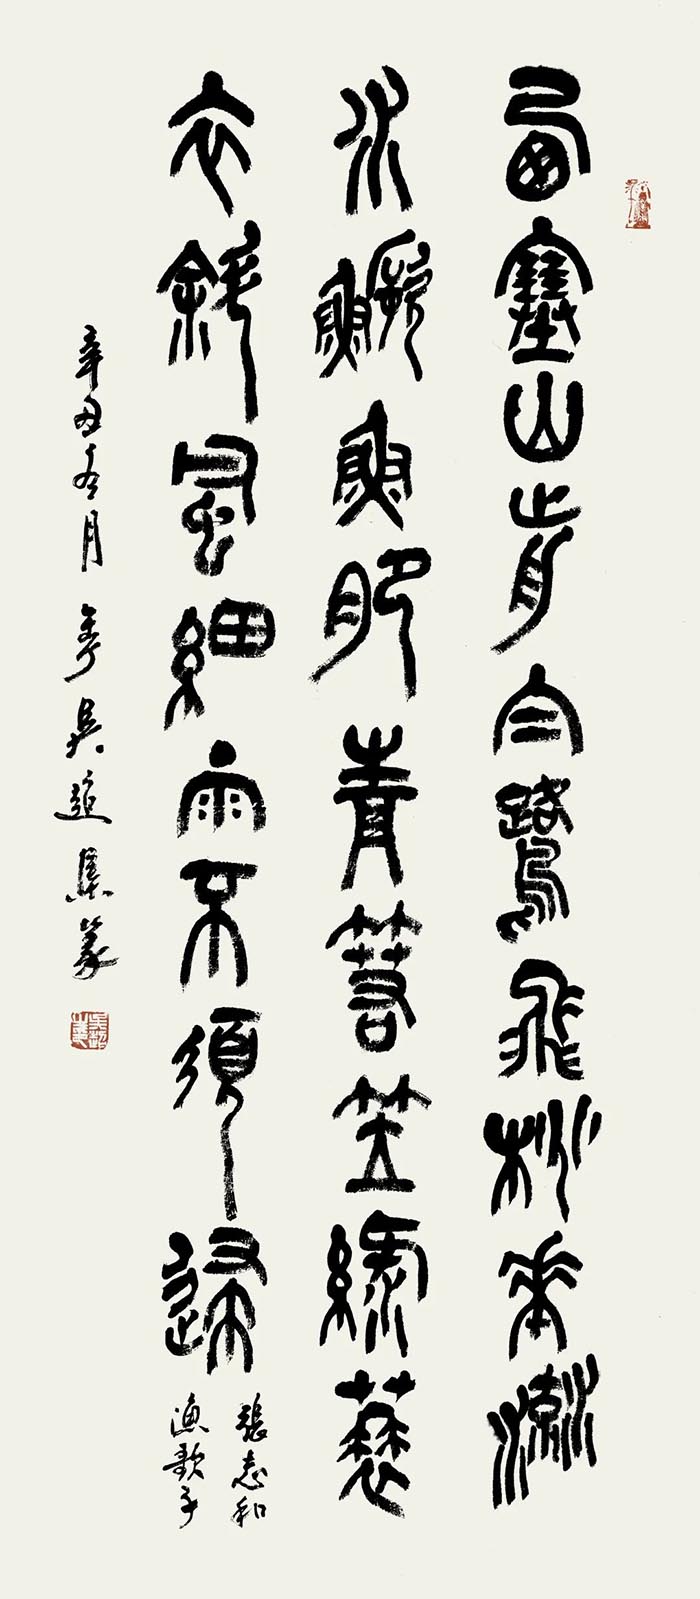 西塞山前白鷺飛桃花流
水鱖魚肥青箬笠綠蓑
衣斜風細雨不須歸
張志和
漁歌子
辛丑 月 吳 集篆